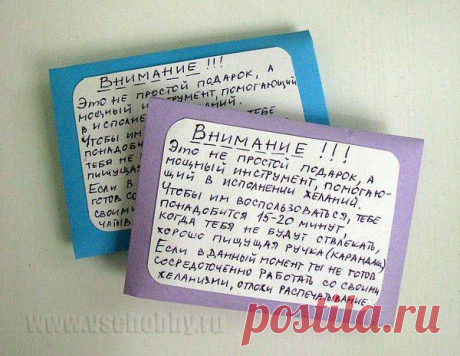 ВНИМАНИЕ !!!
Это не простой подарок, а
мощный инструмент, помогающий
в исполнении желаний.
Чтобы им тебе
понадоби
тебя не
пишуща
Если в
готов со
своими
чатыв
ВНИМАНИЕ !!!
Это не простой подарок, а
мощный инструмент, помогаю-
щий в исполнении желаний.
Чтобы им воспользоваться, тебе
понадобится 15-20 минут,
когда тебя не будут отвлекать,
хорошо пишущая ручка (карандаш)
Если в данный момент ты не готов
сосредоточенно работать со своими
желаниями, отложи распечатывание
www.vsehobby.ru
postila.ru